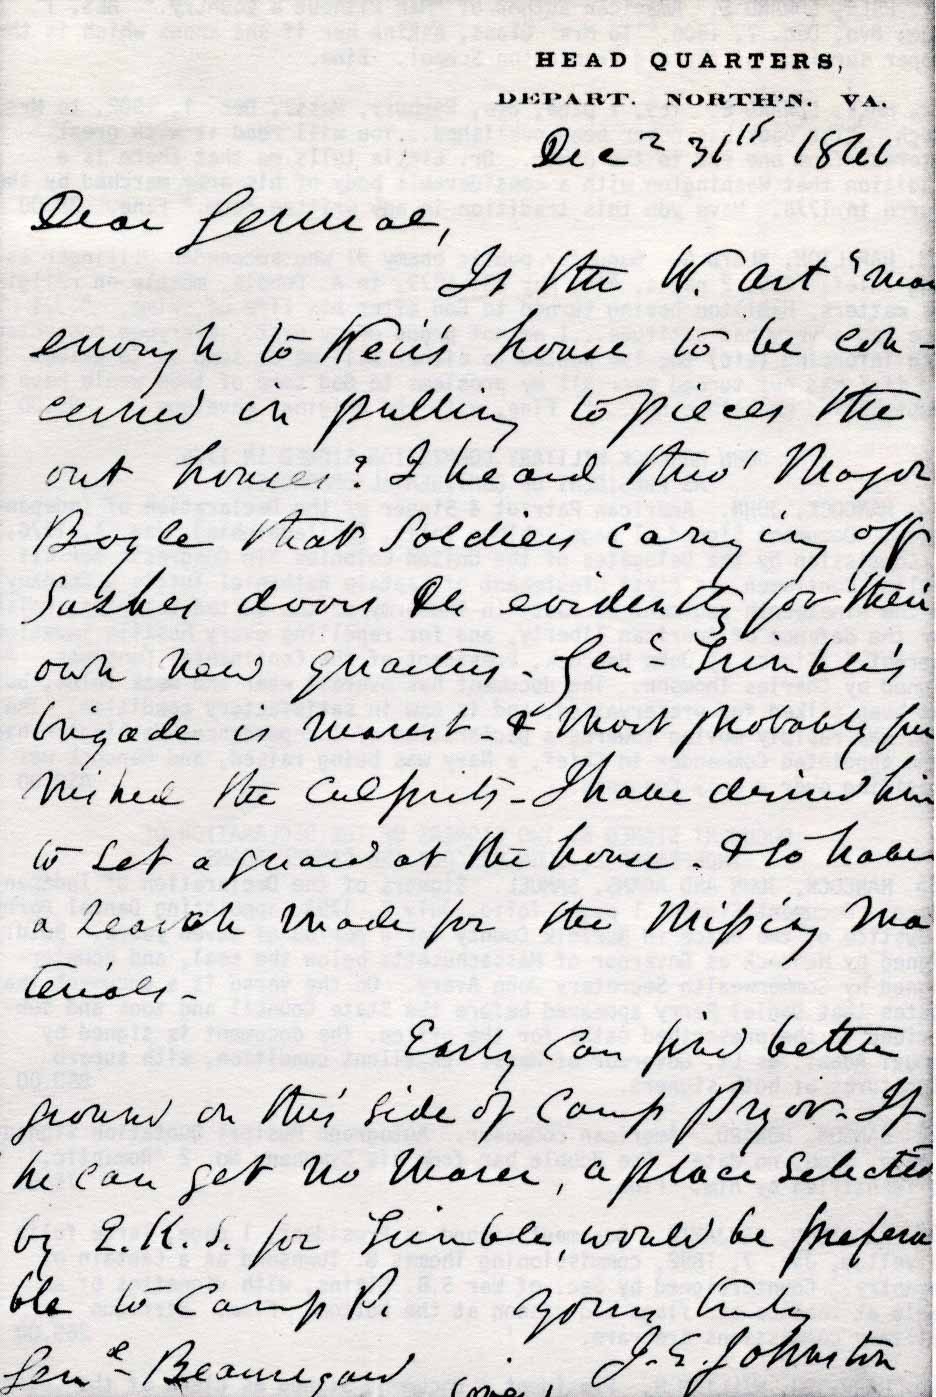 HEAD QUARTERS,
DEPART. NORTH'N. VA.
Decr 31st 1861
Dear General,
Is the W. Art near
enough to Weir's house to be con-
cerned in pulling to pieces the
out houses? I heard thro' Major
Boyle that Soldiers carrying off
Sashes doors &c evidently for their
own new quarters - Genl Trimble's
brigade is nearest & most probably fur
nished the culprits - I have desired him
to set a guard at the house. & to have
a search made for the missing ma
terials -
Early can find better
ground on this side of Camp Pryor - If
he can get no nearer, a place selected
by E.K.S. for Trimble, would be prefera
ble to Camp P.
Yours truly
J.E. Johnston
Genl Beauregard
(over)